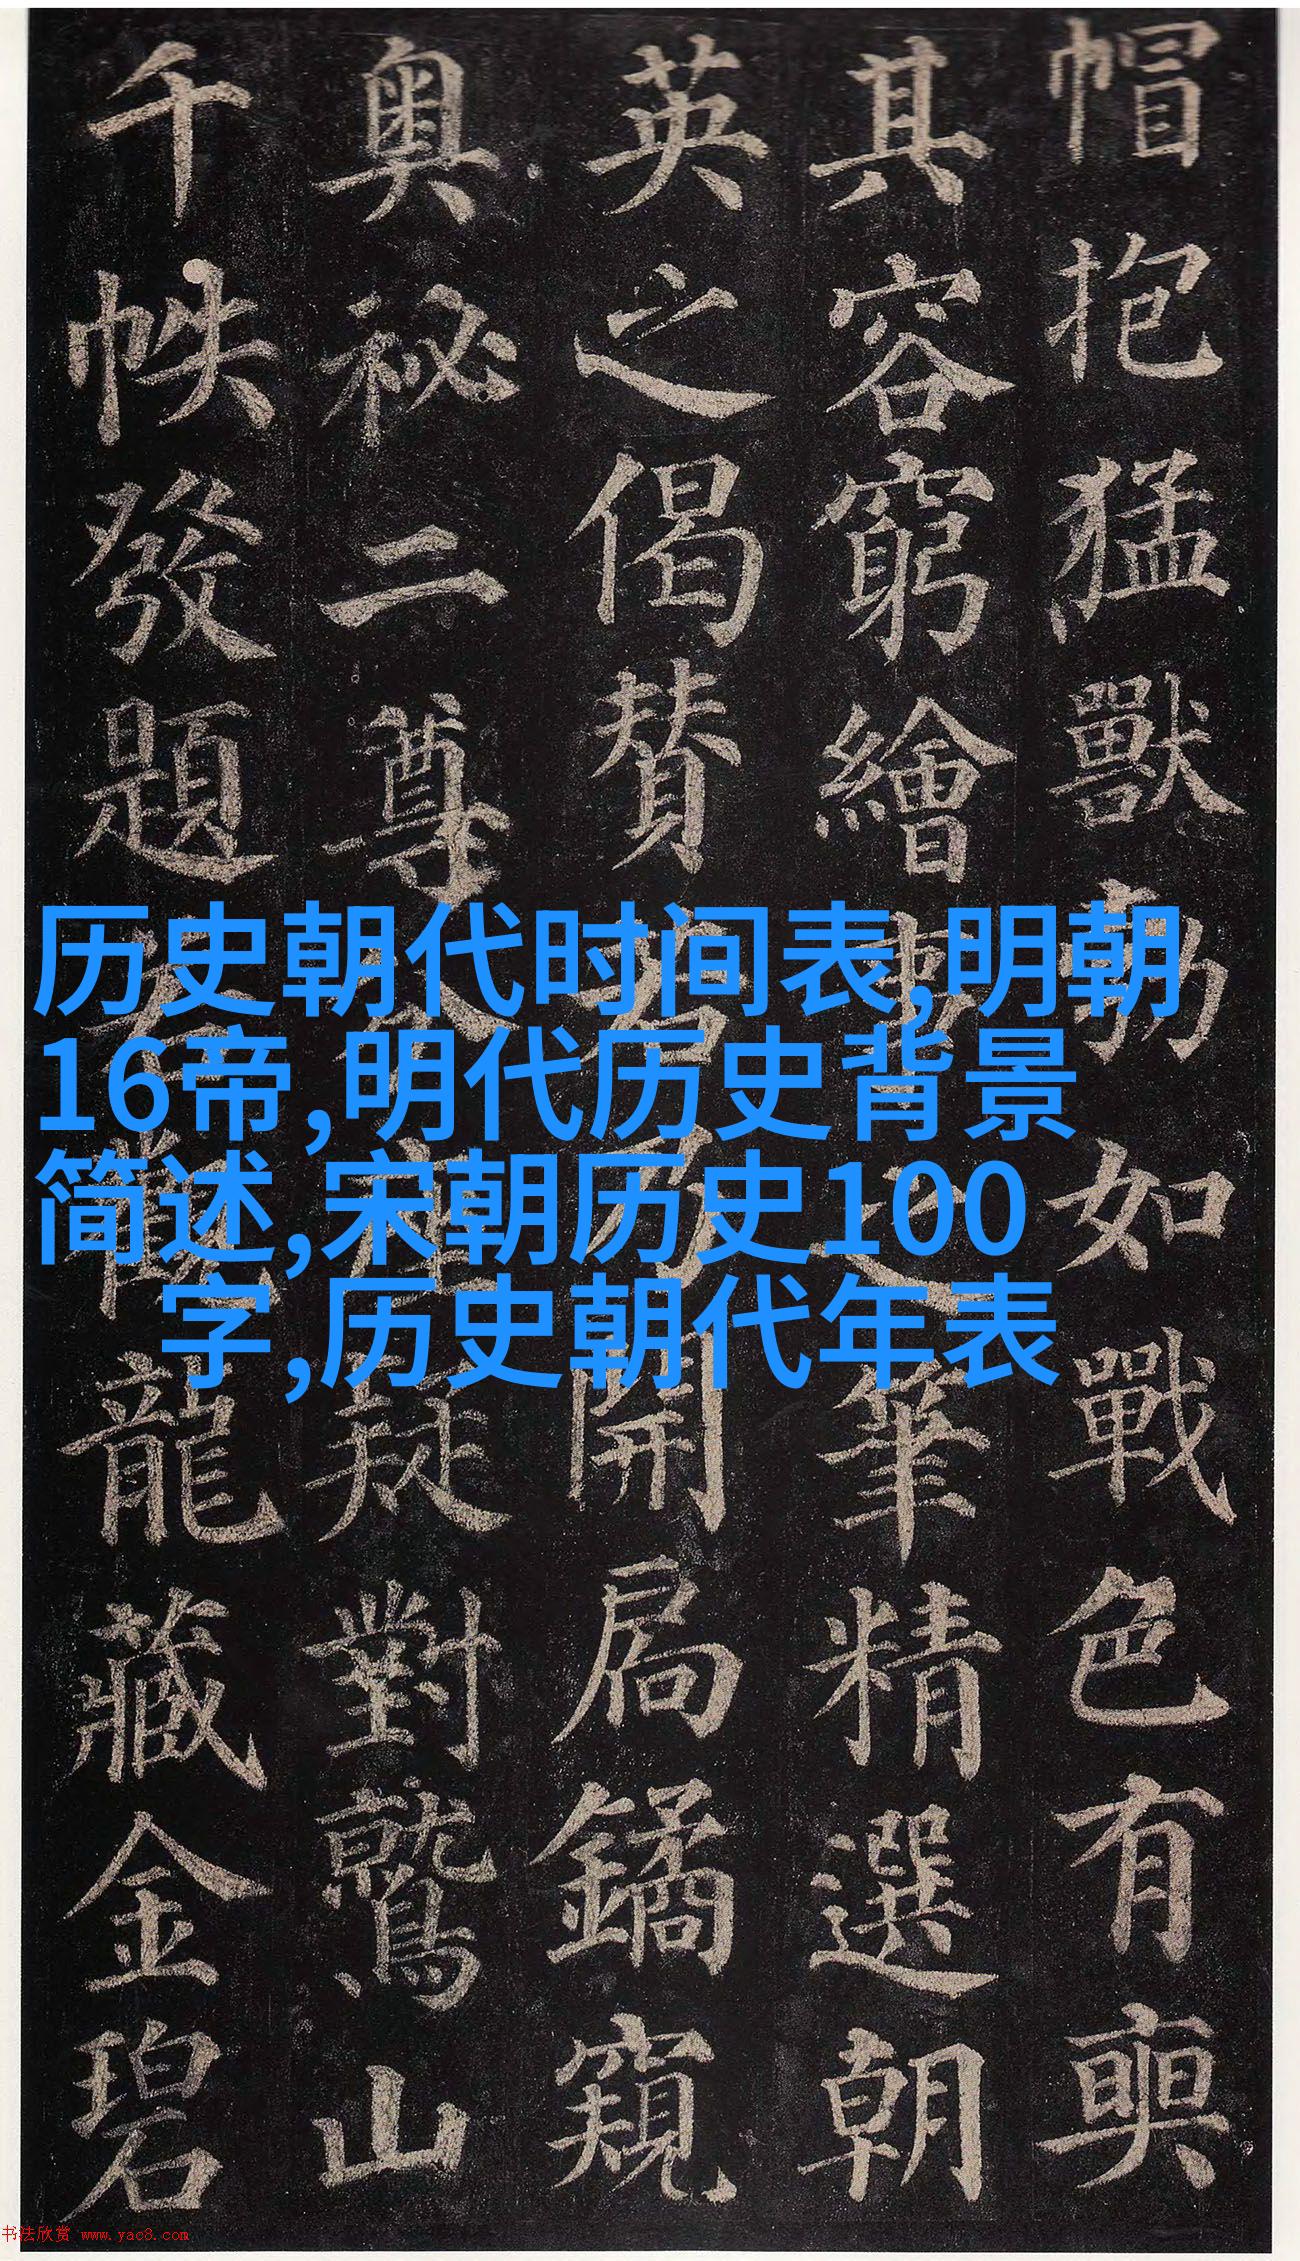 帽抱猛獸勃如戰色有奭
其容窮繪事之筆精選朝
英之偈賛若乃開扃鐍窺
奥祕二尊分座疑對鷲山
千帙發題若觀龍藏金碧
历史朝代时间表,明朝
16帝,明代历史背景
简述,宋朝历史100
字,历史朝代年表
书法欣赏 www.yac8.com